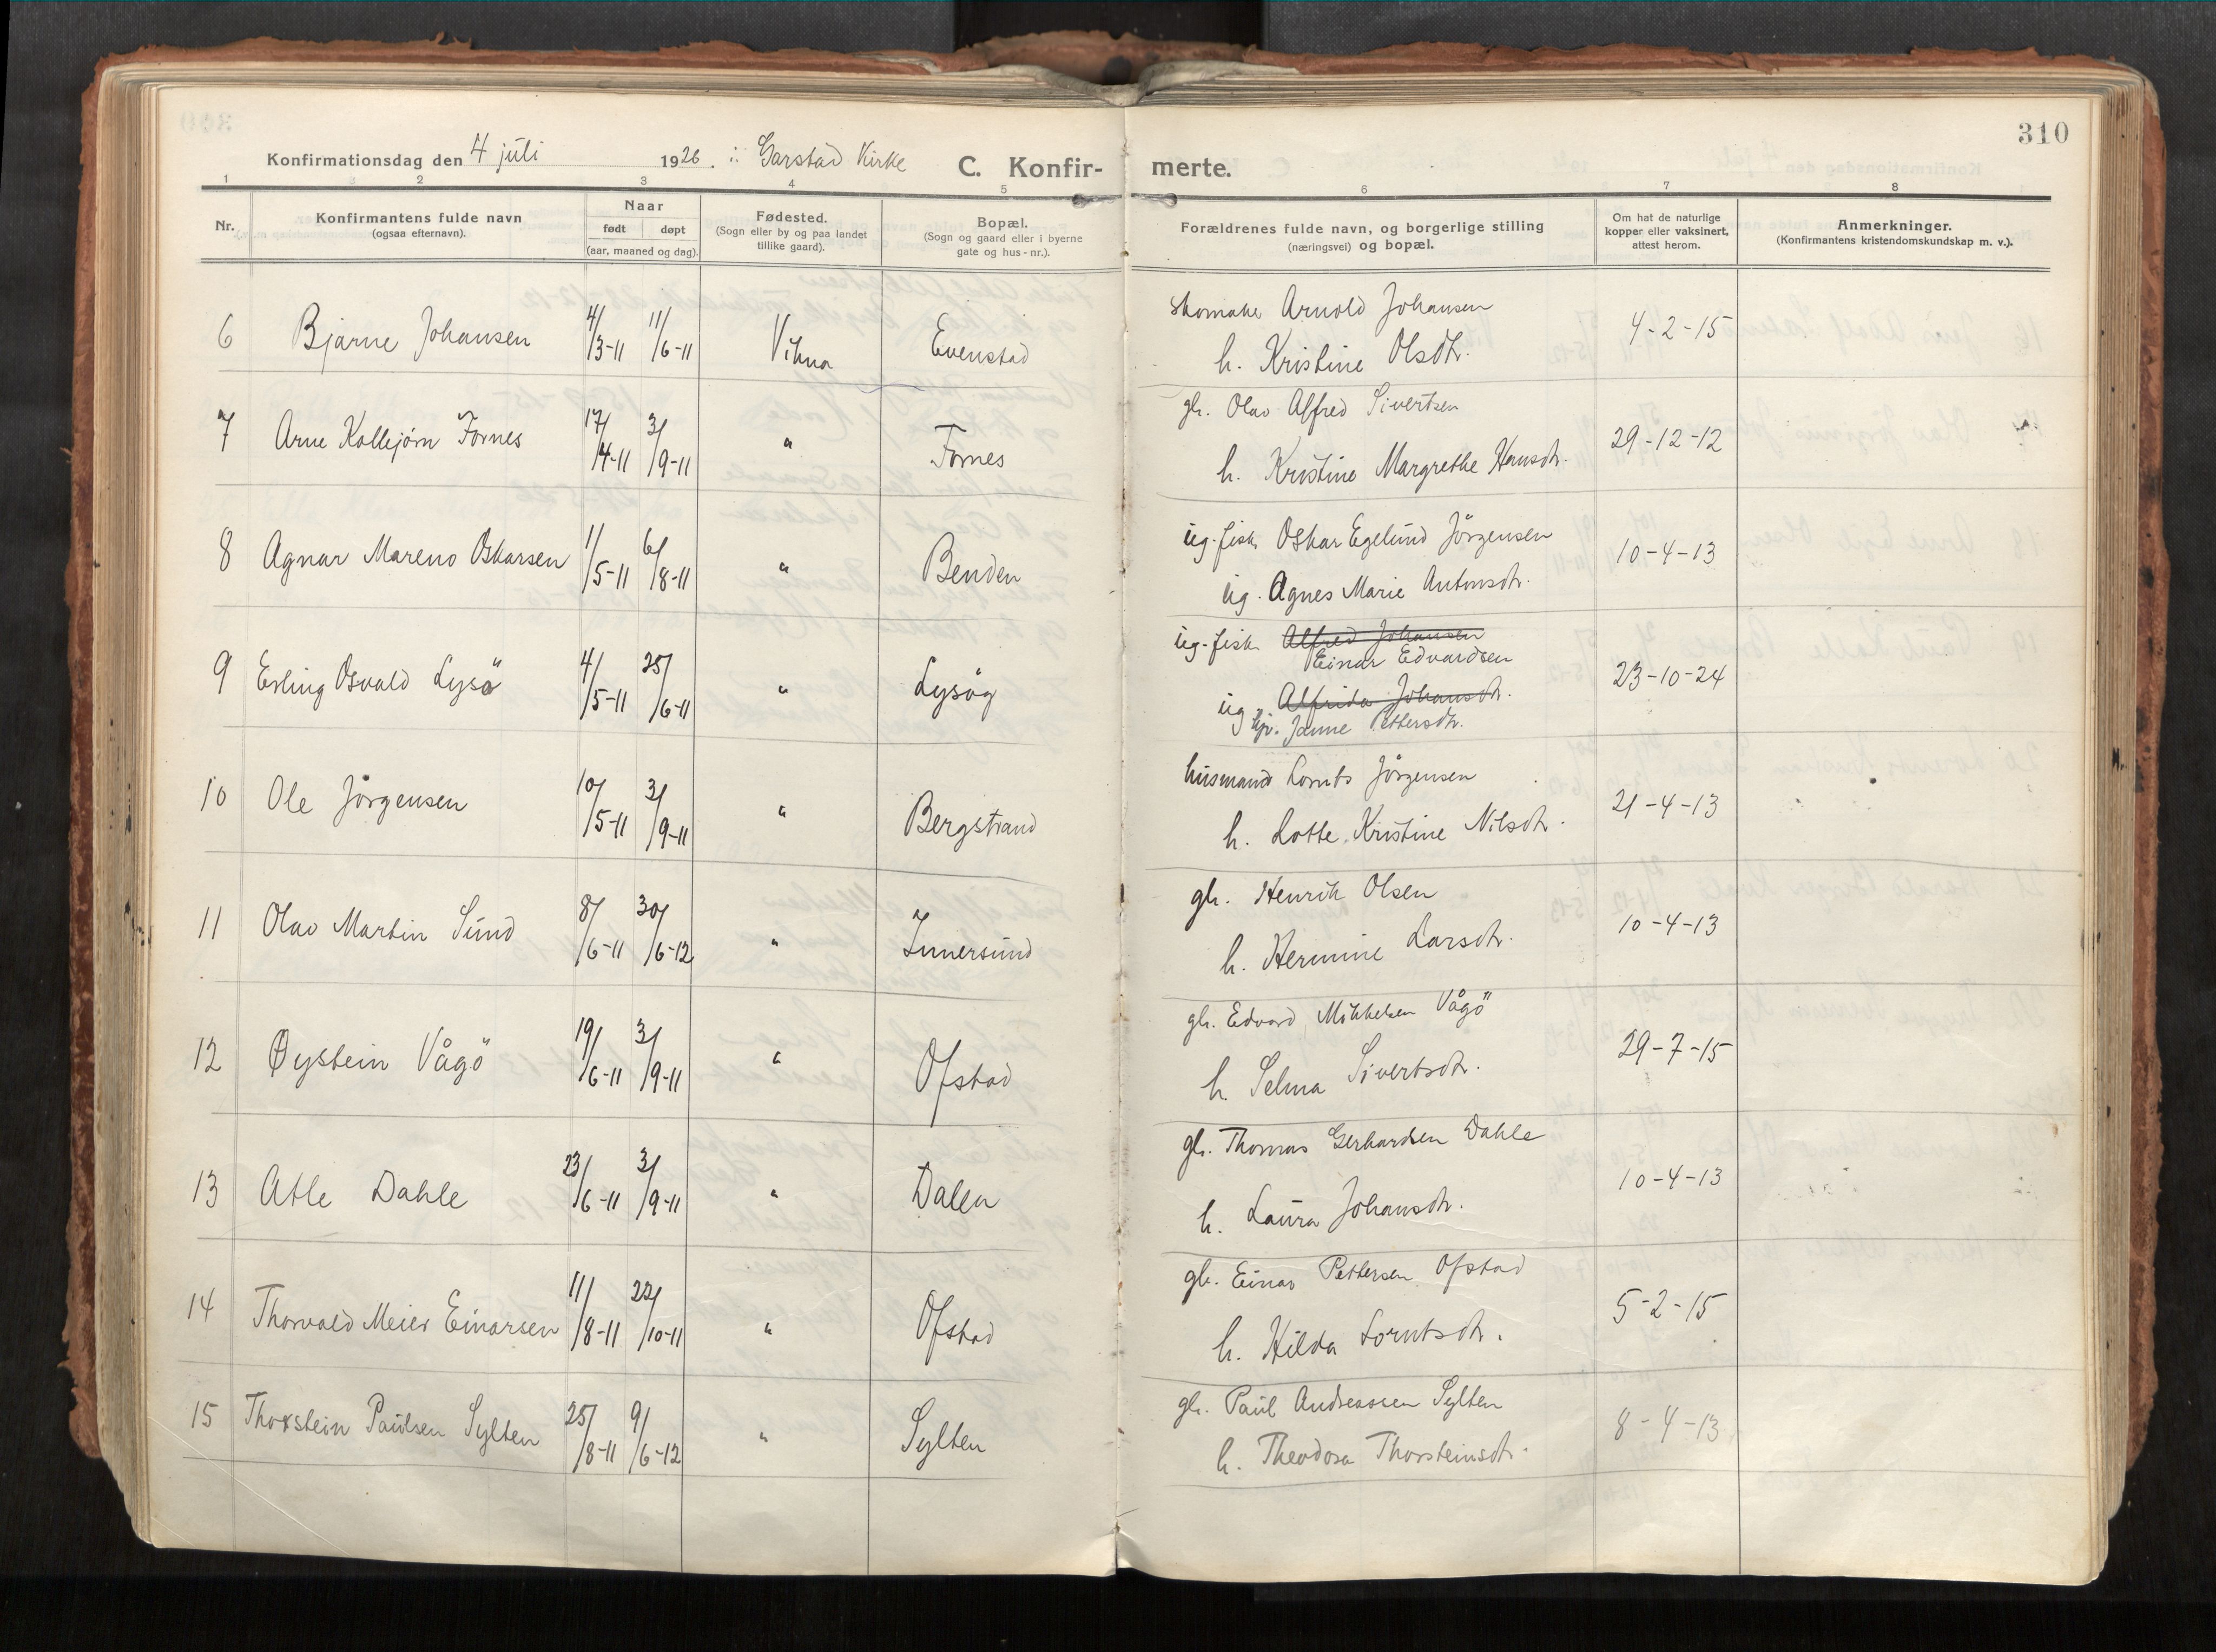 310
Konfirmationsdag den 4 juli 1926. i: Garstad Kirke C. Konfir- merte.
1 2 3 4 5 6 7 8
Nr.
Konfirmantens fulde navn
(ogsaa efternavn).
Naar
født døpt
(aar, maaned og dag).
Fødested.
(Sogn eller by og paa landet
tillike gaard).
Bopæl.
(Sogn og gaard eller i byerne
gate og hus-nr.).
Forældrenes fulde navn, og borgerlige stilling
(næringsvei) og bopæl.
Om hat de naturlige
kopper eller vaksinert,
attest herom.
Anmerkninger.
(Konfirmantens kristendomskundskap m. v.).
6 Bjarne Johansen 4/3-11 11/6-11 Vikna Evenstad
Skomaker Arnold Johansen
h. Kristine Olsdtr. 4-2-15
7 Arne Kolbjørn Fornes 17/4-11 3/9-11 " Fornes
gb. Olav Alfred Sivertsen
h. Kristine Margrethe Hansdtr. 29-12-12
8 Agnar Mareno Oskarsen 1/5-11 6/8-11 " Benden
ug. fisk. Oskar Egelund Jörgensen
ug. Agnes Marie Antonsdtr. 10-4-13
9 Erling Osvald Lysö 4/5-11 25/6-11 " Lysög
ug. fisk. Alfred Johansen
Einar Edvardsen
ug. Alfrida Johansdtr.
Janne Pettersdtr. 23-10-24
10 Ole Jörgensen 10/5-11 3/9-11 " Bergstrand
husmand Lornts Jörgensen
h. Lotte Kristine Nilsdtr. 21-4-13
11 Olav Martin Sund 8/6-11 30/6-12 " Innersund
gb. Henrik Olsen
h. Hermine Larsdtr. 10-4-13
12 Øystein Vågö 19/6-11 3/9-11 " Ofstad
gb. Edvard Mikkelsen Vågö
h. Selma Sivertsdtr. 29-7-15
13 Atle Dahle 23/6-11 3/9-11 " Dalen
gb. Thomas Gerhardsen Dahle
h. Laura Johansdtr. 10-4-13
14 Thorvald Meier Einarsen 11/8-11 22/10-11 " Ofstad
gb. Einar Pettersen Ofstad
h. Hilda Lorntsdtr. 5-2-15
15 Thorstein Paulsen Sylten 25/8-11 9/6-12 " Sylten
gb. Paul Andreassen Sylten
h. Theodora Thorsteinsdtr. 8-4-13